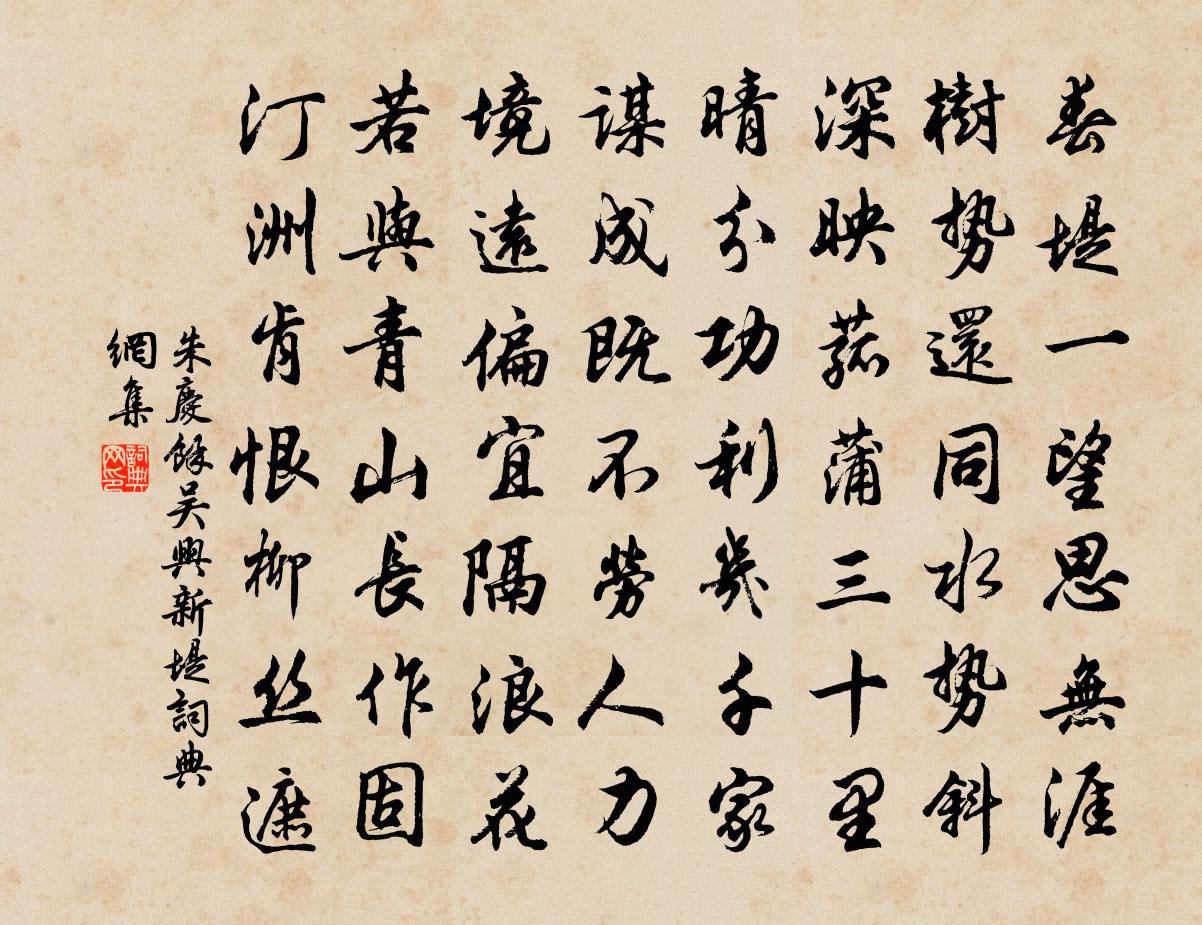 春堤一望思無涯
樹勢還同水勢斜
深映菰蒲三十里
晴分功利幾千家
謀成既不勞人力
境遠偏宜隔浪花
若與青山長作固
汀洲肯恨柳丝遮
朱慶餘吴興新堤詞典
網集
詞典
网印